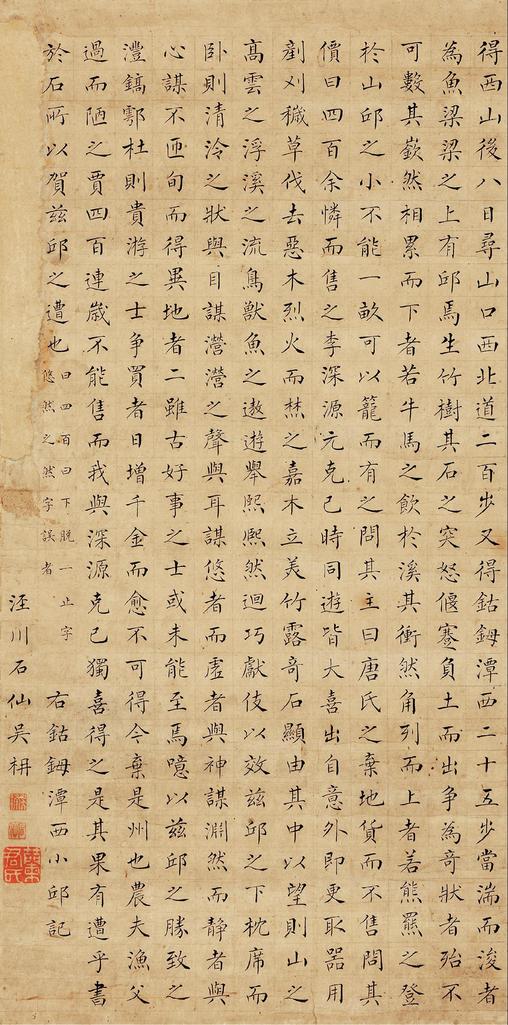 得西山後八日尋山口西北道二百步又得鈷鉧潭西二十五步當湍而浚者
為魚梁梁之上有邱焉生竹樹其石之突怒偃蹇負土而出爭為奇狀者殆不
可數其嶔然相累而下者若牛馬之飲於溪其衝然角列而上者若熊羆之登
於山邱之小不能一畝可以籠而有之問其主曰唐氏之棄地貨而不售問其
價曰四百余憐而售之李深源元克己時同遊皆大喜出自意外即更取器用
剷刈穢草伐去惡木烈火而焚之嘉木立美竹露奇石顯由其中以望則山之
高雲之浮溪之流鳥獸魚之遨遊舉熙熙然迴巧獻伎以效茲邱之下枕席而
卧則清泠之狀與目謀瀯瀯之聲與耳謀悠者而虛者與神謀淵然而靜者與
心謀不匝旬而得異地者二雖古好事之士或未能至焉噫以茲邱之勝致之
灃鎬鄠杜則貴游之士爭買者日增千金而愈不可得今棄是州也農夫漁父
過而陋之賈四百連歲不能售而我與深源克己獨喜得之是其果有遭乎書
於石所以賀茲邱之遭也
曰四百曰下脫一止字
悠然之然字誤者
右鈷鉧潭西小邱記
涇川石仙吳枬